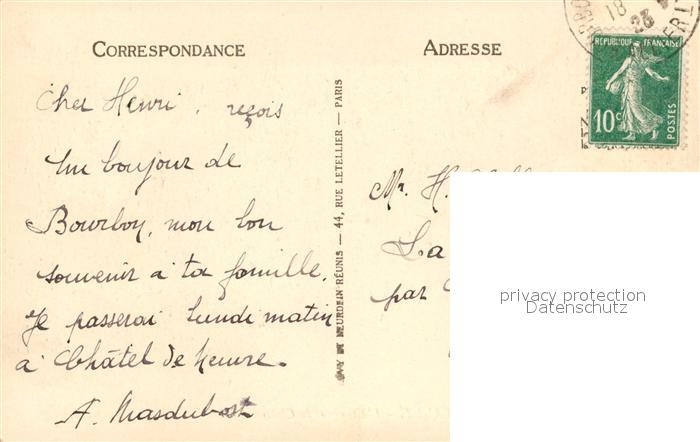 CORRESPONDANCE
ADRESSE
18
23
REPUBLIQUE FRANÇAISE
10c
POSTES
Cher Henri, reçois
un bonjour de
Bourbon, mon bon
souvenir à ta famille.
Je passerai lundi matin
à Châtel de neuvre.
A. Masdubost
44, RUE LETELLIER — PARIS
NEURDEIN RÉUNIS —
Mr. H.
La
par
privacy protection
Datenschutz